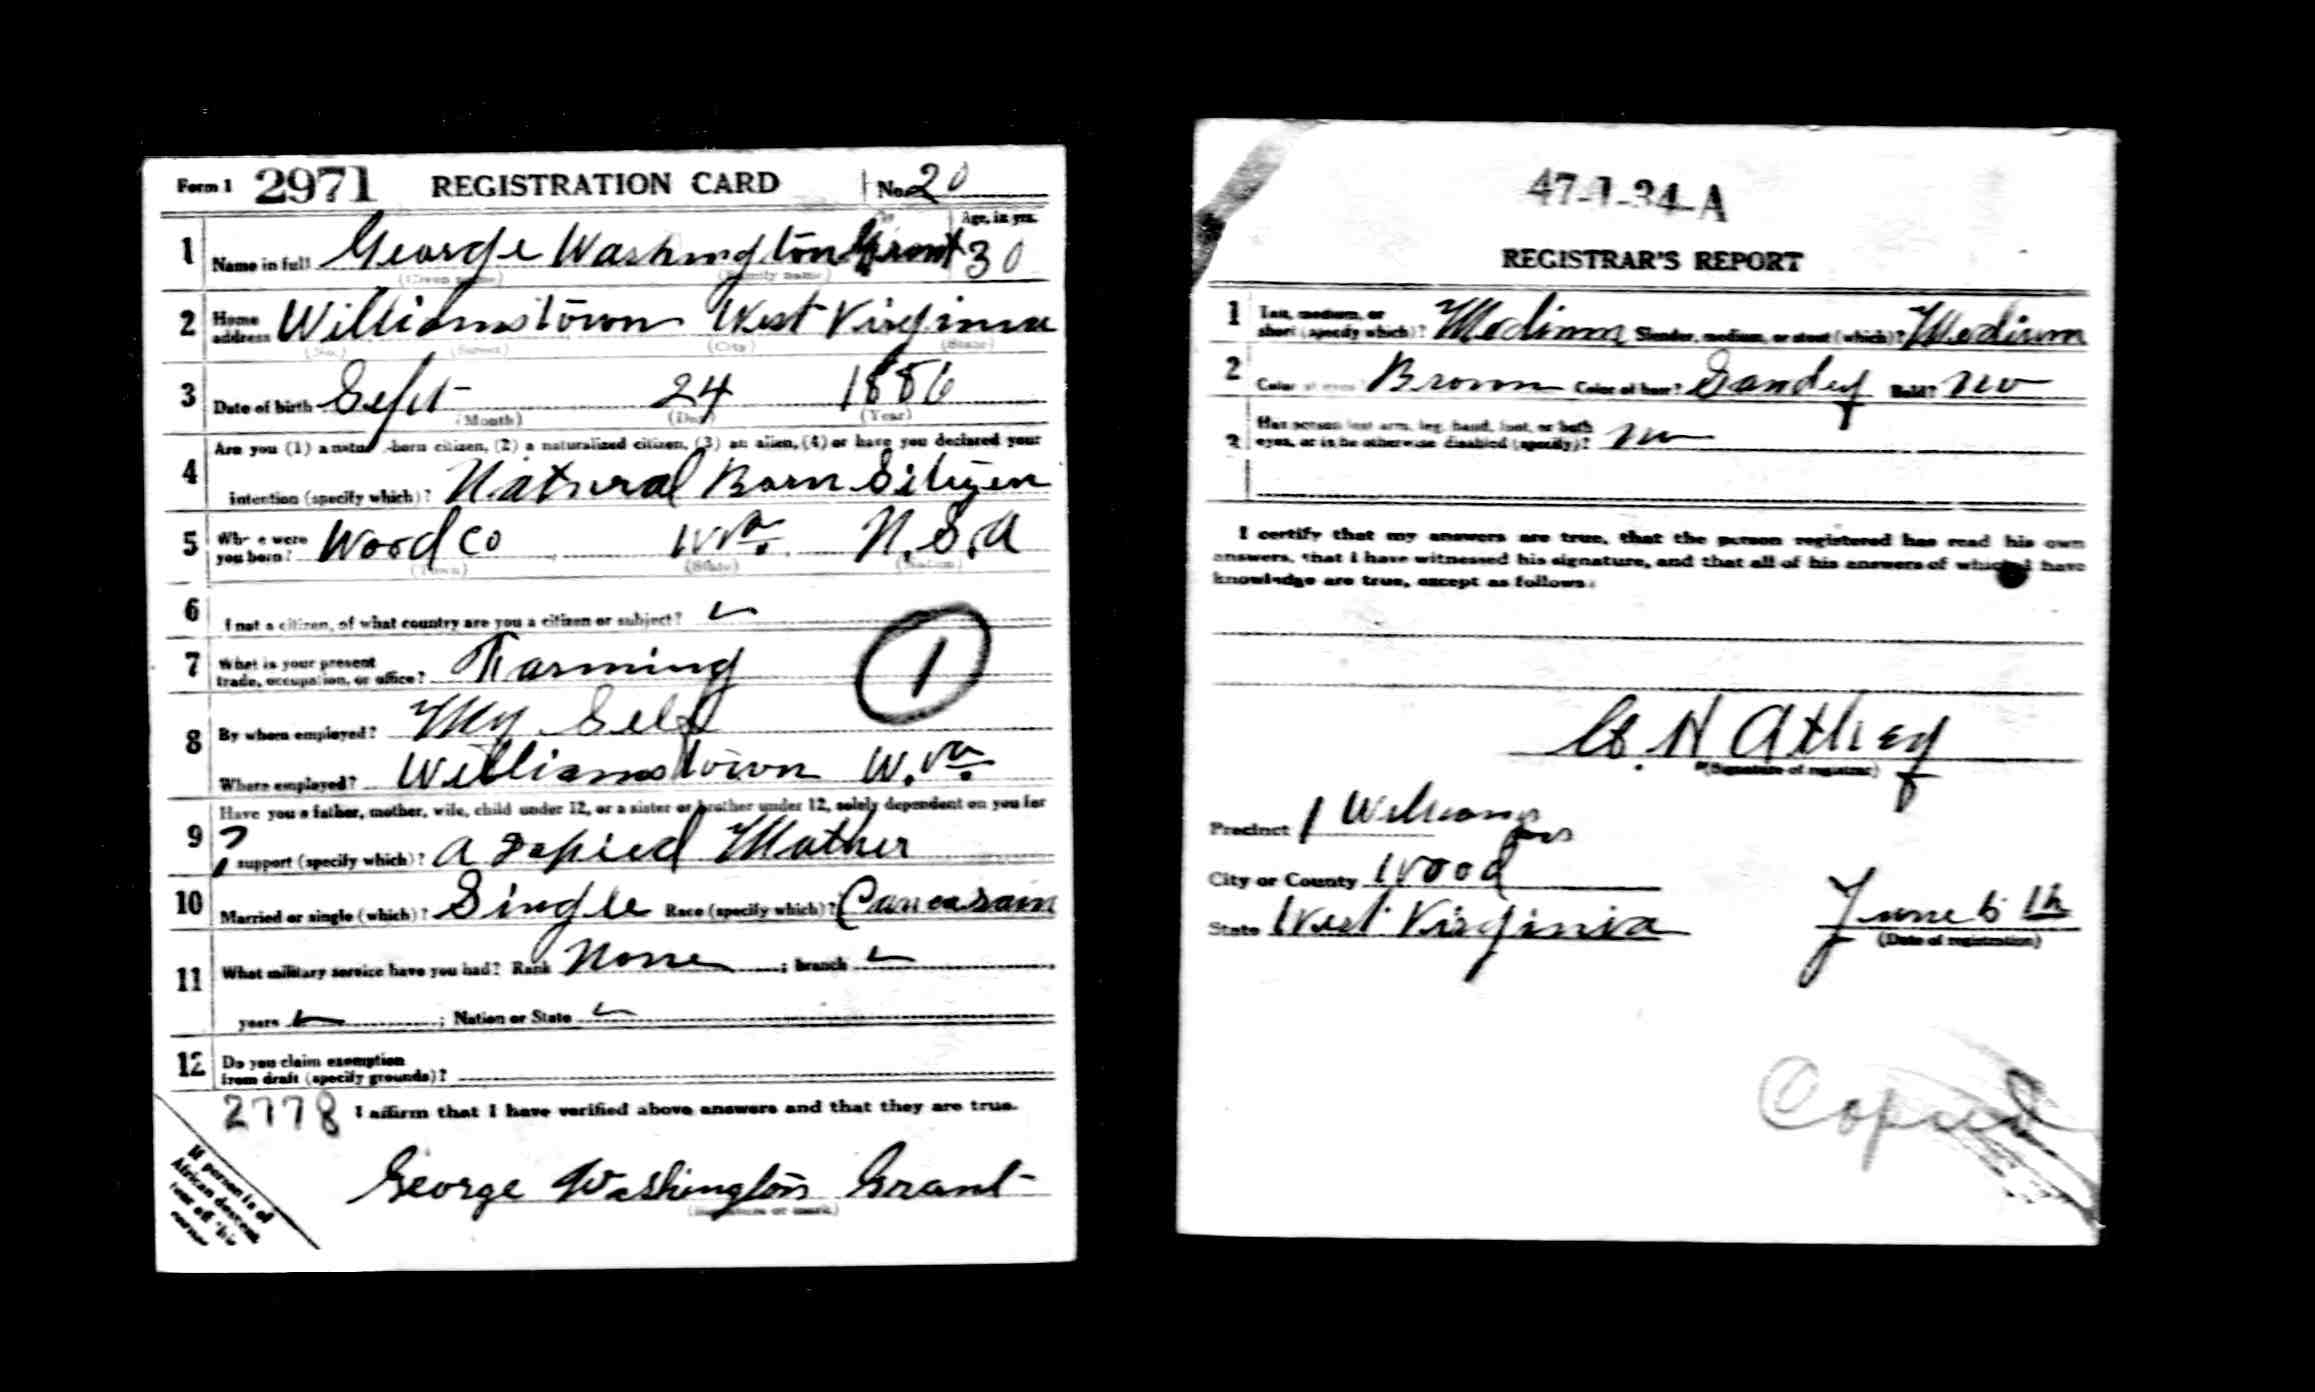 Form 1 2971 REGISTRATION CARD No. 20
1 Name in full George Washington Grant Age, in yrs. 30
(Given name) (Family name)
2 Home address Williamstown West Virginia
(No.) (Street) (City) (State)
3 Date of birth Sept 24 1886
(Month) (Day) (Year)
Are you (1) a natural-born citizen, (2) a naturalized citizen, (3) an alien, (4) or have you declared your
4 intention (specify which)? Natural Born Sitizen
5 Where were you born? Wood Co W Va. U.S.A
(Town) (State) (Nation)
6 If not a citizen, of what country are you a citizen or subject?
7 What is your present trade, occupation, or office? Farming 1
8 By whom employed? My Self
Where employed? Williamstown W. Va.
Have you a father, mother, wife, child under 12, or a sister or brother under 12, solely dependent on you for
9 ? support (specify which)? A Mother
10 Married or single (which)? Single Race (specify which)? Caucasain
11 What military service have you had? Rank None ; branch
years ; Nation or State
12 Do you claim exemption from draft (specify grounds)?
2778 I affirm that I have verified above answers and that they are true.
George Washington Grant
(Signature or mark)
If person is of
African descent
tear off this
corner
47-1-34-A
REGISTRAR'S REPORT
1 Tall, medium, or short (specify which)? Medium Slender, medium, or stout (which)? Medium
2 Color of eyes? Brown Color of hair? Sandy Bald? No
3 Has person lost arm, leg, hand, foot, or both eyes, or is he otherwise disabled (specify)? No
I certify that my answers are true, that the person registered has read his own
answers, that I have witnessed his signature, and that all of his answers of which I have
knowledge are true, except as follows:
H Athey
(Signature of registrar)
Precinct 1 Williams
City or County Wood
State West Virginia June 5 th
(Date of registration)
Copied